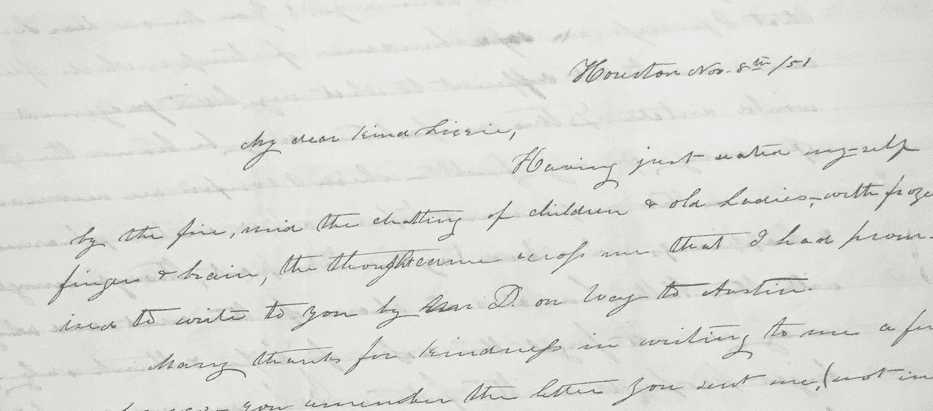 Houston Nov. 8th /51
My dear kind Lizzie,
Having just seated my-self
by the fire, mid the chatting of children & old Ladies, with froze
finger & brain, the thought came across me that I had prom-
ised to write to you by Mr D. on way to Austin.
Many thanks for kindness in writing to me a few
you remember the letter you sent me, (not in